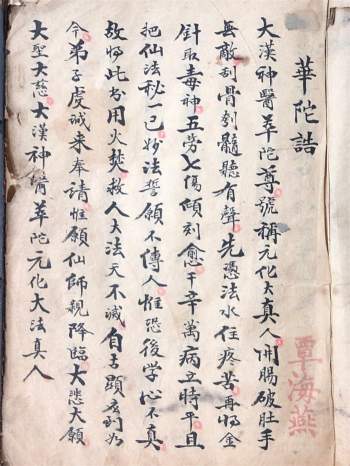 華陀誥
大漢神醫華陀尊號稱元化大真人開腸破肚手
無敵刮骨刮髓聽有聲先憑法水住疼苦再將金
針取毒神五勞七傷傾刻愈千辛萬病立時平且
把仙法秘一己妙法誓願不傳人惟恐後学心不真
故將此書用火焚救人大法天不滅自古到如
今弟子虔诚来奉請惟願仙師親降臨大悲大願
大聖大慈大漢神醫華陀元化大法真人
覃海燕